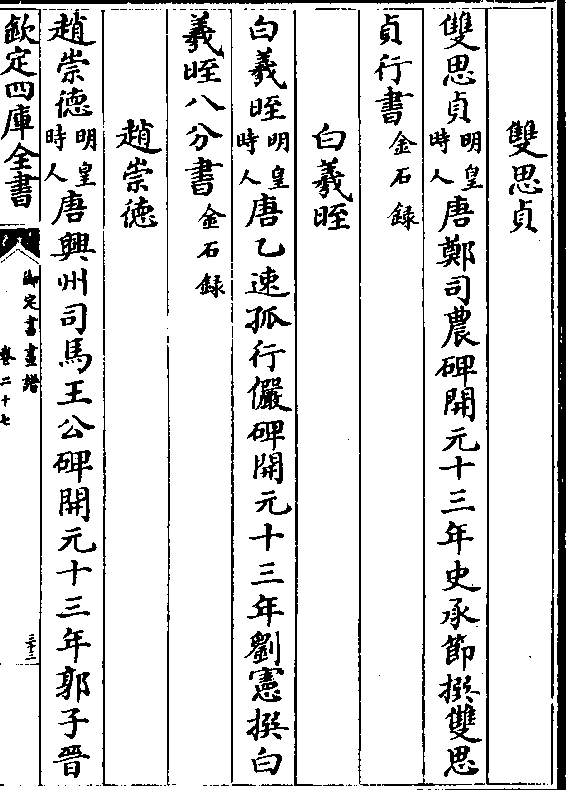 雙思貞
雙思貞明皇時人唐鄭司農碑開元十三年史承節撰雙思
貞行書金石録
白羲晊
白羲晊明皇時人唐乙速孤行儼碑開元十三年劉憲撰白
羲晊八分書金石録
趙崇徳
趙崇徳明皇時人唐興州司馬王公碑開元十三年郭子晉
欽定四庫全書
御定書畫譜
卷二十七
三十二